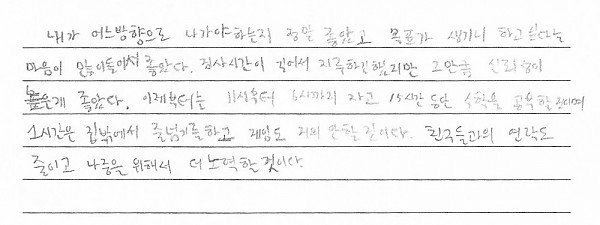 내가 어느방향으로 나가야하는지 정말 좋았고 목표가 생기니 하고싶다는
마음이 많이들어서 좋았다. 검사시간이 길어서 지루하긴했지만 그만큼 신뢰성이
높은게 좋았다. 이제부터는 11시부터 6시까지 자고 15시간 동안 수학을 공부할것이며
1시간은 집밖에서 줄넘기를하고 게임도 거의 안할것이다. 친구들과의 연락도
줄이고 나중을 위해서 더 노력할 것이다.